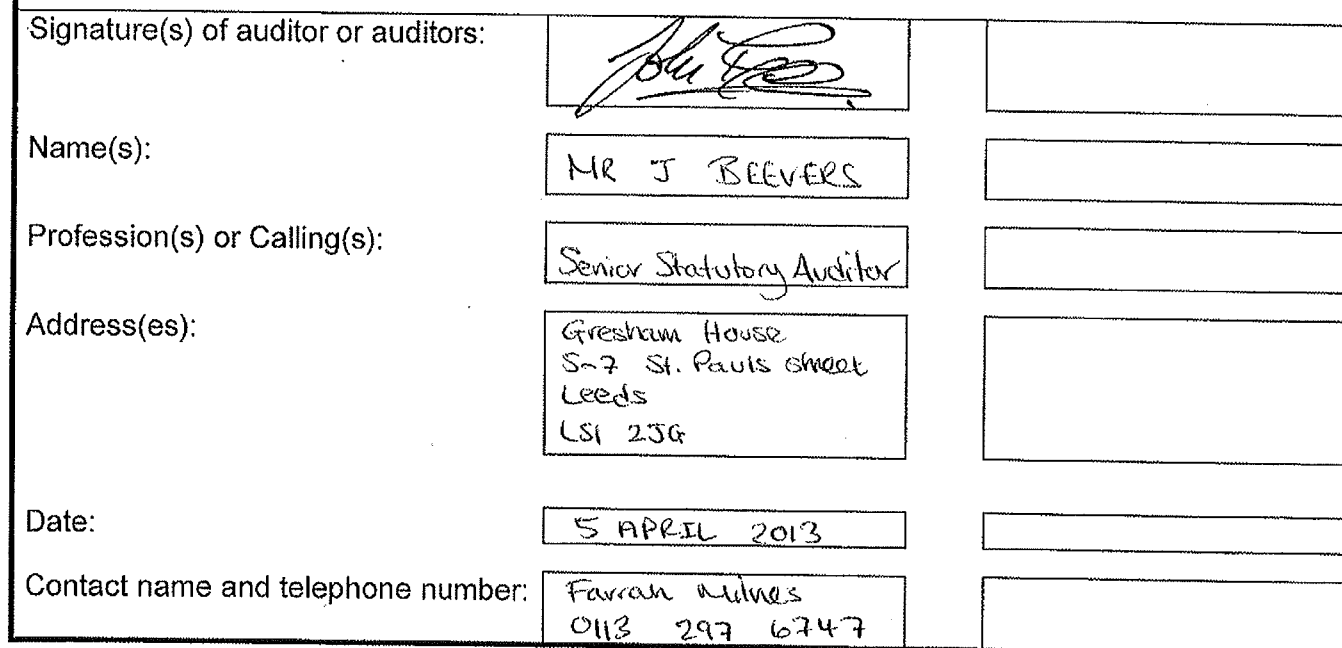 Signature(s) of auditor or auditors:
John
Name(s):
MR J BEEVERS
Profession(s) or Calling(s):
Senior Statutory Auditor
Address(es):
Gresham House
5-7 St. Pauls street
Leeds
LS1 2JG
Date:
5 APRIL 2013
Contact name and telephone number:
Farrah Milnes
0113 297 6747